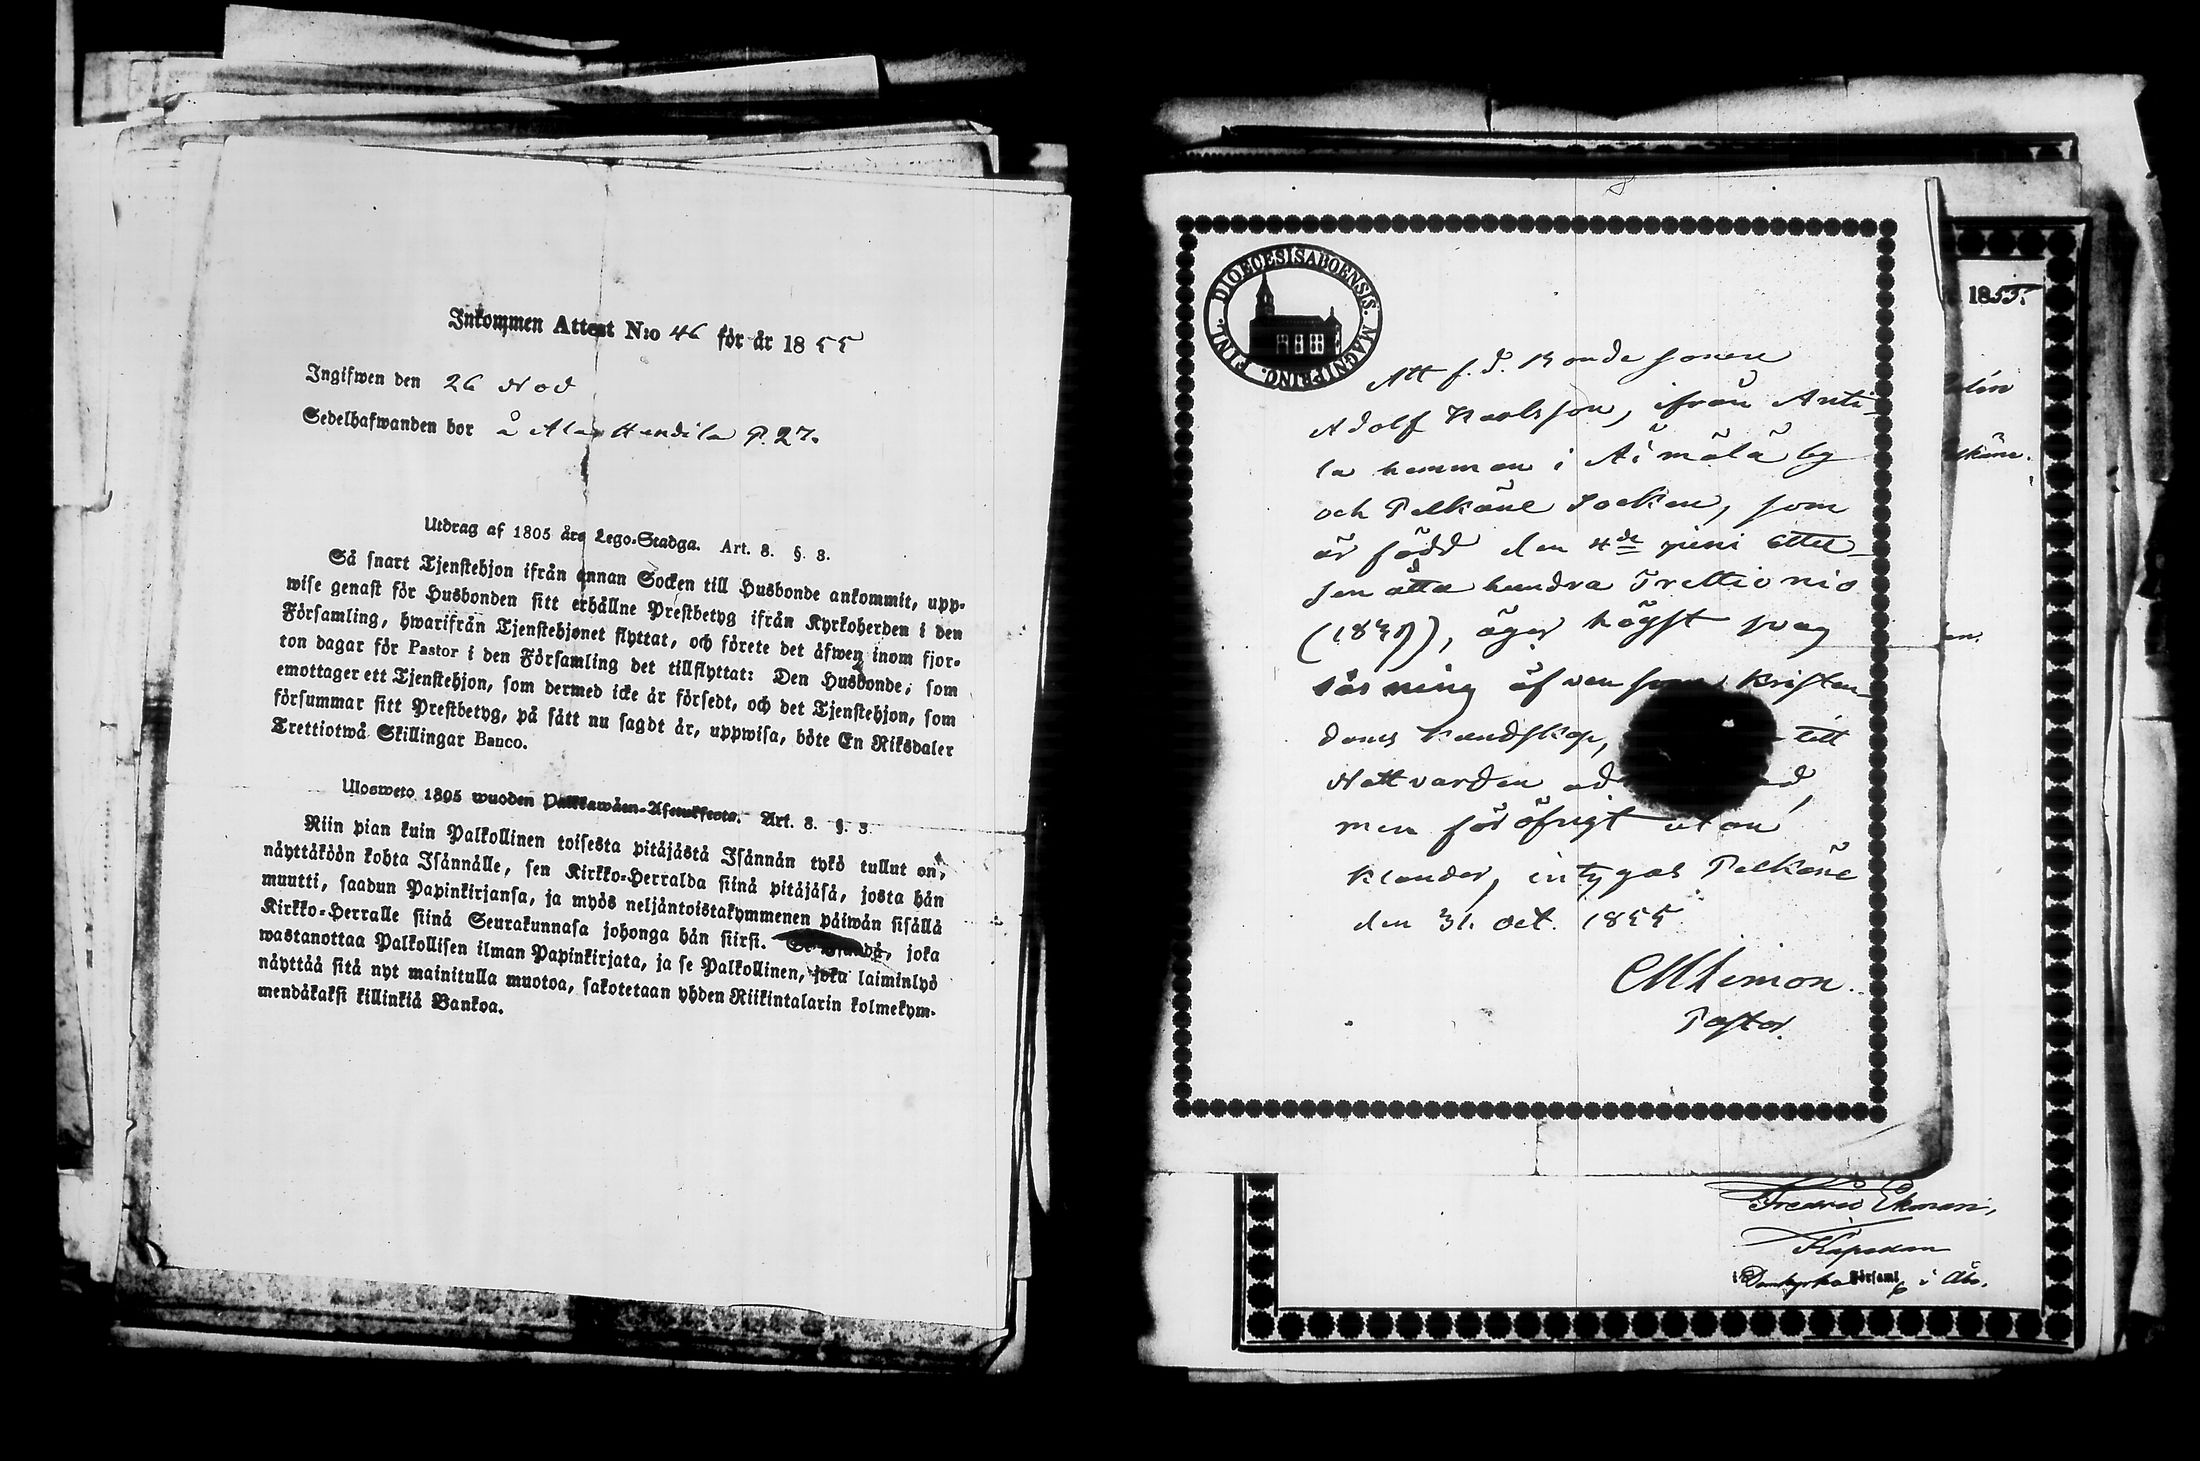 Inkommen Attest N:o 46 för år 1855
Ingifwen den 26 Nov
Sedelhafwanden bor å Ala Handila P. 27.
Utdrag af 1805 års Lego-Stadga. Art. 8. §. 3.
Så snart Tjenstehjon ifrån annan Socken till Husbonde ankommit, upp-
wise genast för Husbonden sitt erhållne Prestbetyg ifrån Kyrkoherden i den
Församling, hwarifrån Tjenstehjonet flyttat, och förete det äfwen inom fjor-
ton dagar för Pastor i den Församling det tillflyttat: Den Husbonde, som
emottager ett Tjenstehjon, som dermed icke är försedt, och det Tjenstehjon, som
försummar sitt Prestbetyg, på sätt nu sagdt är, uppwisa, böte En Riksdaler
Trettiotwå Skillingar Banco.
Ulosweto 1805 wuoden Palkkawäen-Asetuksesta. Art. 8. §. 3.
Niin pian kuin Palkollinen toisesta pitäjästä Isännän tykö tullut on,
näyttäköön kohta Isännälle, sen Kirkko-Herralda siinä pitäjäsä, josta hän
muutti, saadun Papinkirjansa, ja myös neljäntoistakymmenen päiwän sisällä
Kirkko-Herralle siinä Seurakunnasa johonga hän siirsi. Se Isändä, joka
wastanottaa Palkollisen ilman Papinkirjata, ja se Palkollinen, joka laiminlyö
näyttää sitä nyt mainitulla muotoa, sakotetaan yhden Riikintalarin kolmekym-
mendäkaksi killinkiä Bankoa.
FINL. DIOECESIS ABOENSIS. MAGNI PRINC.
Att f. d. Bonde sonen
Adolf Karlsson, ifrån Anti-
la hemman i Äimälä by
och Pelkäne Socken, som
är född den 4de juni Ettu-
sen åtta hundra Trettionio
(1839), äger högst svag
läsning äfven som Kristen
doms kundskap, till
Nattvarden
men för öfrigt utan
klander, intygas Pelkäne
den 31. Oct. 1855
Pastor.
1855.
Fredric Ekman,
Kaplan
i Domkyrko Församl i Åbo.